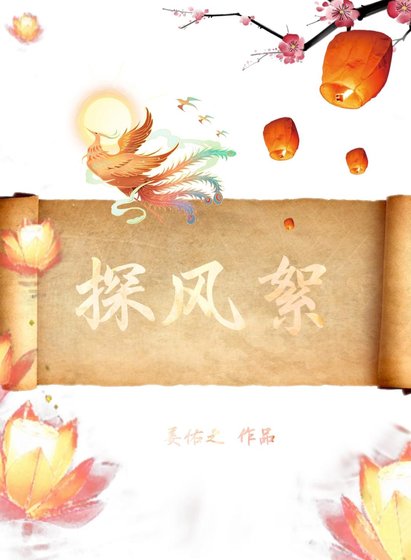 探风絮
姜佑之 作品